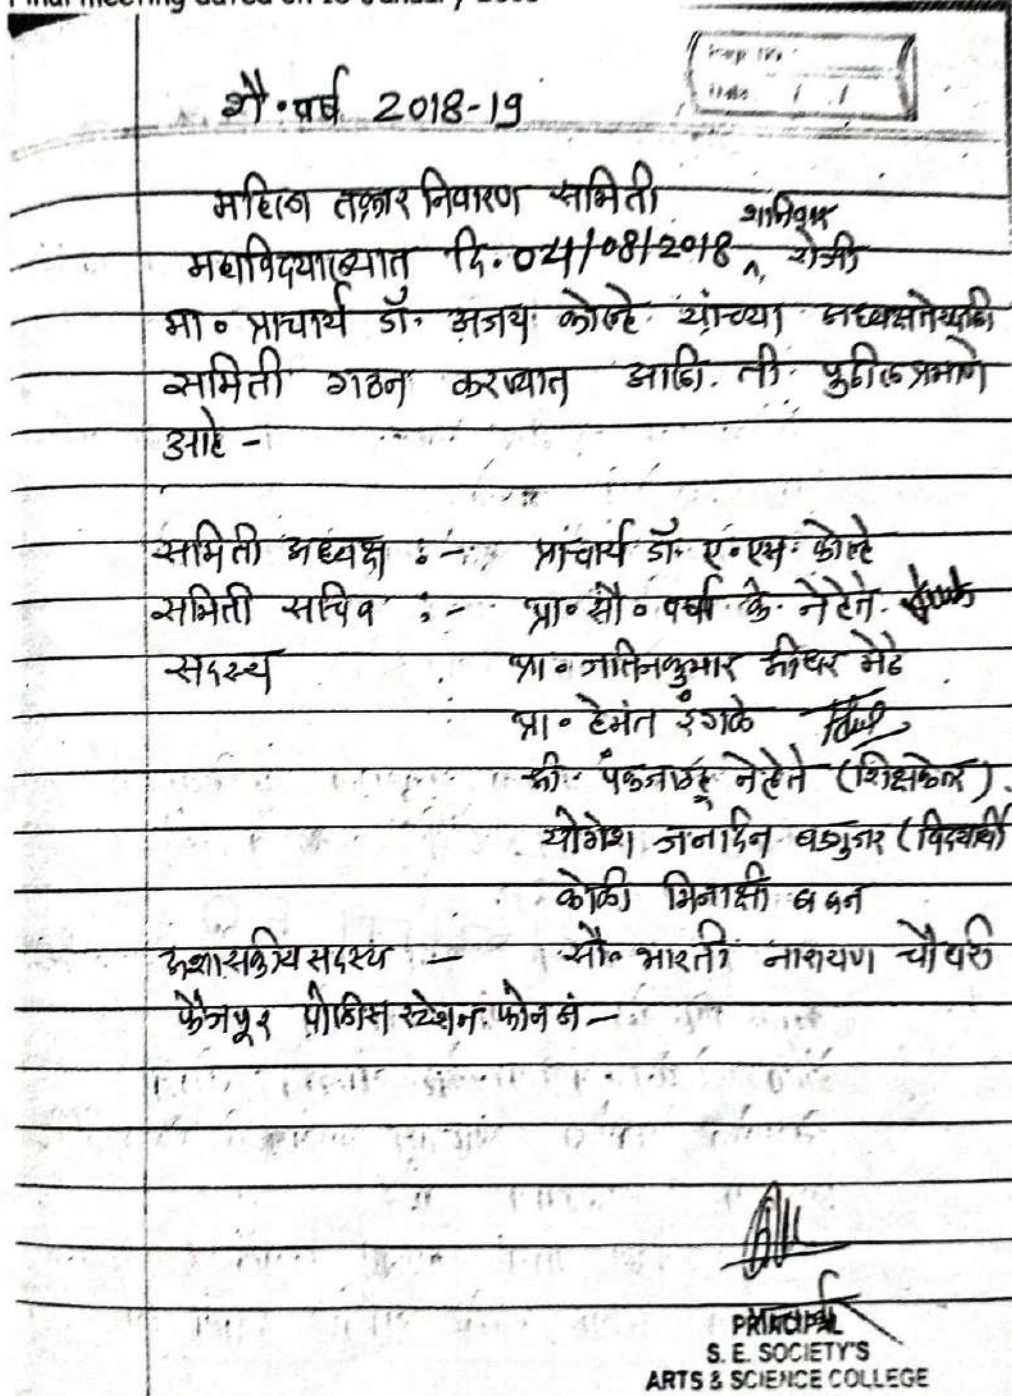 Final meeting dated on
Page No :
Date / /
शै. वर्ष 2018-19
महिला तक्रार निवारण समिती
शनिवार
महाविद्याल्यात दि. 04/08/2018 ^ रोजी
मा. प्राचार्य डॉ. अजय कोल्हे यांच्या अध्यक्षतेखाली
समिती गठन करण्यात आली. ती पुढील प्रमाणे
आहे -
समिती अध्यक्ष :- प्राचार्य डॉ. ए. एम. कोल्हे
समिती सचिव :- प्रा. सौ. वर्षा के. नेहेते
सदस्य प्रा. जतिनकुमार श्रीधर मेढे
प्रा. हेमंत इंगळे
श्री. नेहेते (शिक्षकेतर)
योगेश जनार्दन बडगुजर (विद्यार्थी
कोळी मिनाक्षी
अशासकीय सदस्य - सौ. भारती नारायण चौधरी
फैजपूर पोलिस स्टेशन फोन नं -
PRINCIPAL
S. E. SOCIETY'S
ARTS & SCIENCE COLLEGE